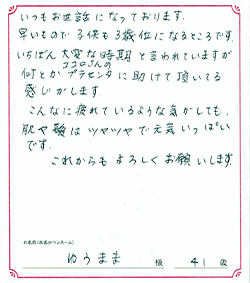 いつもお世話になっております。
早いもので子供も3歳位になるところです。
いちばん大変な時期と言われていますが
ココロさんの
何とかプラセンタに助けて頂いてる
感じがします。
こんなに疲れているような気がしても、
肌や髪はツヤツヤで元気いっぱい
です。
これからもよろしくお願いします。
お名前(匿名かペンネーム)
ゆうまま 様 41 歳